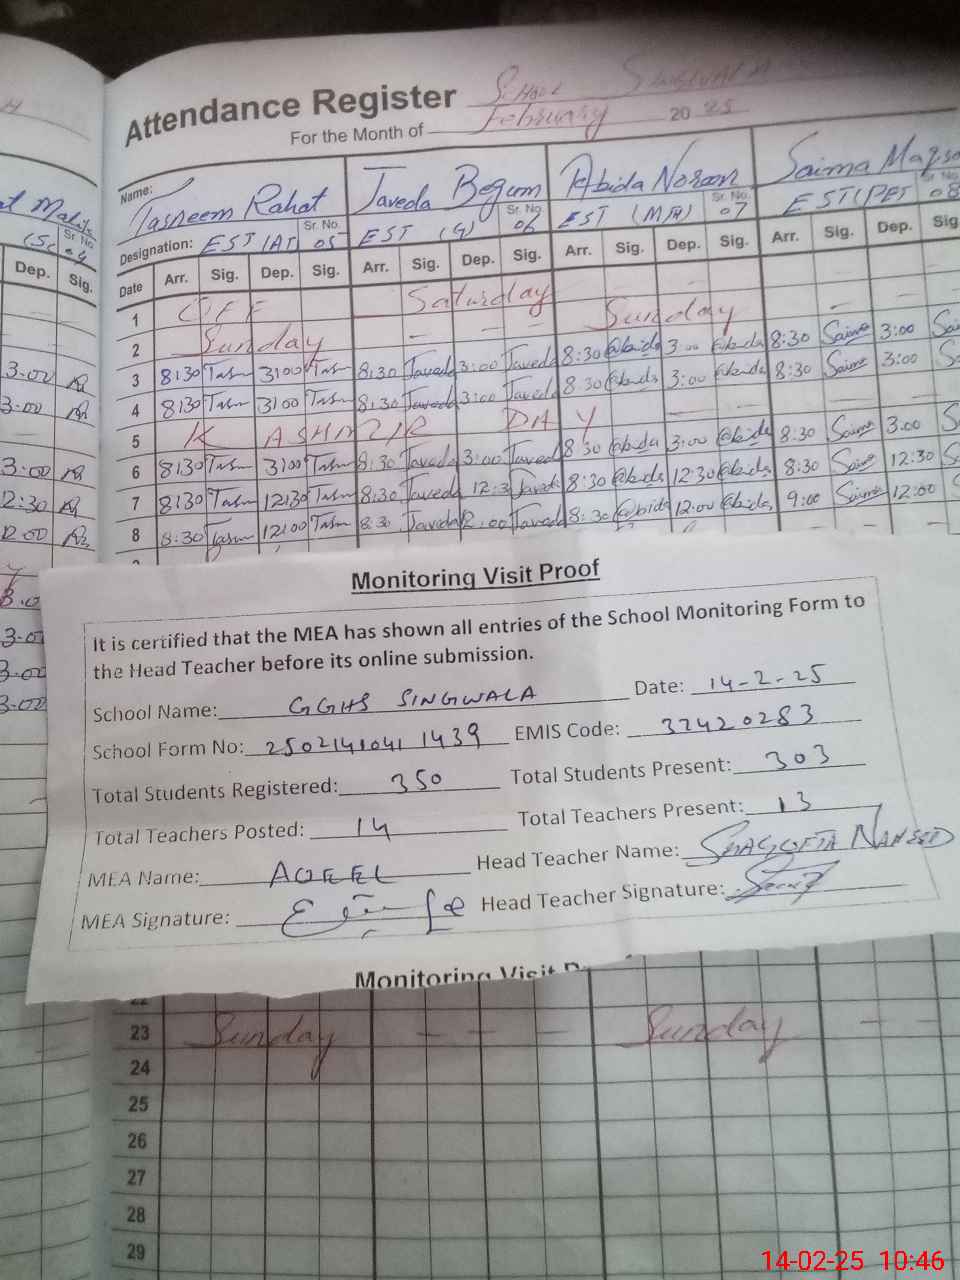 Attendance Register School Singwala
For the Month of February 20 25
Name: Tasneem Rahat Javeda Begum Abida Noreen Saima
Designation: EST (AT) Sr. No. 05 EST (G) Sr. No. 06 EST (MA) Sr. No. 07 EST (PET) Sr. No. 08
Dep. Sig. Date Arr. Sig. Dep. Sig. Arr. Sig. Dep. Sig. Arr. Sig. Dep. Sig. Arr. Sig. Dep. Sig
1 OFF Saturday
2 Sunday Sunday
3.00 3 8:30 Tasn 3:00 Tasn 8:30 Javeda 3:00 Javeda 8:30 @bida 3:00 @bida 8:30 Saima 3:00 Sai
3.00 4 8:30 Tasn 3:00 Tasn 8:30 Javeda 3:00 Javeda 8:30 @bida 3:00 @bida 8:30 Saima 3:00
5 KASHMIR DAY
3:00 6 8:30 Tasn 3:00 Tasn 8:30 Javeda 3:00 Javed 8:30 @bida 3:00 @bida 8:30 Saima 3:00
12:30 7 8:30 Tasn 12:30 Tasn 8:30 Javeda 12:3 8:30 @bida 12:30 @bida 8:30 Saima 12:30
12:00 8 8:30 Tasm 12:00 Tasm 8:30 Javida 12:00 Javed 8:30 @bida 12:00 @bida 9:00 Saima 12:00
Monitoring Visit Proof
It is certified that the MEA has shown all entries of the School Monitoring Form to
the Head Teacher before its online submission.
School Name: GGHS SINGWALA Date: 14-2-25
School Form No: 2502141041 1439 EMIS Code: 37420283
Total Students Registered: 350 Total Students Present: 303
Total Teachers Posted: 14 Total Teachers Present: 13
MEA Name: AQEEL Head Teacher Name: SHAGUFTA NAHEED
MEA Signature: Head Teacher Signature:
Monitoring Visit
22
23 Sunday Sunday
24
25
26
27
28
29
14-02-25 10:46